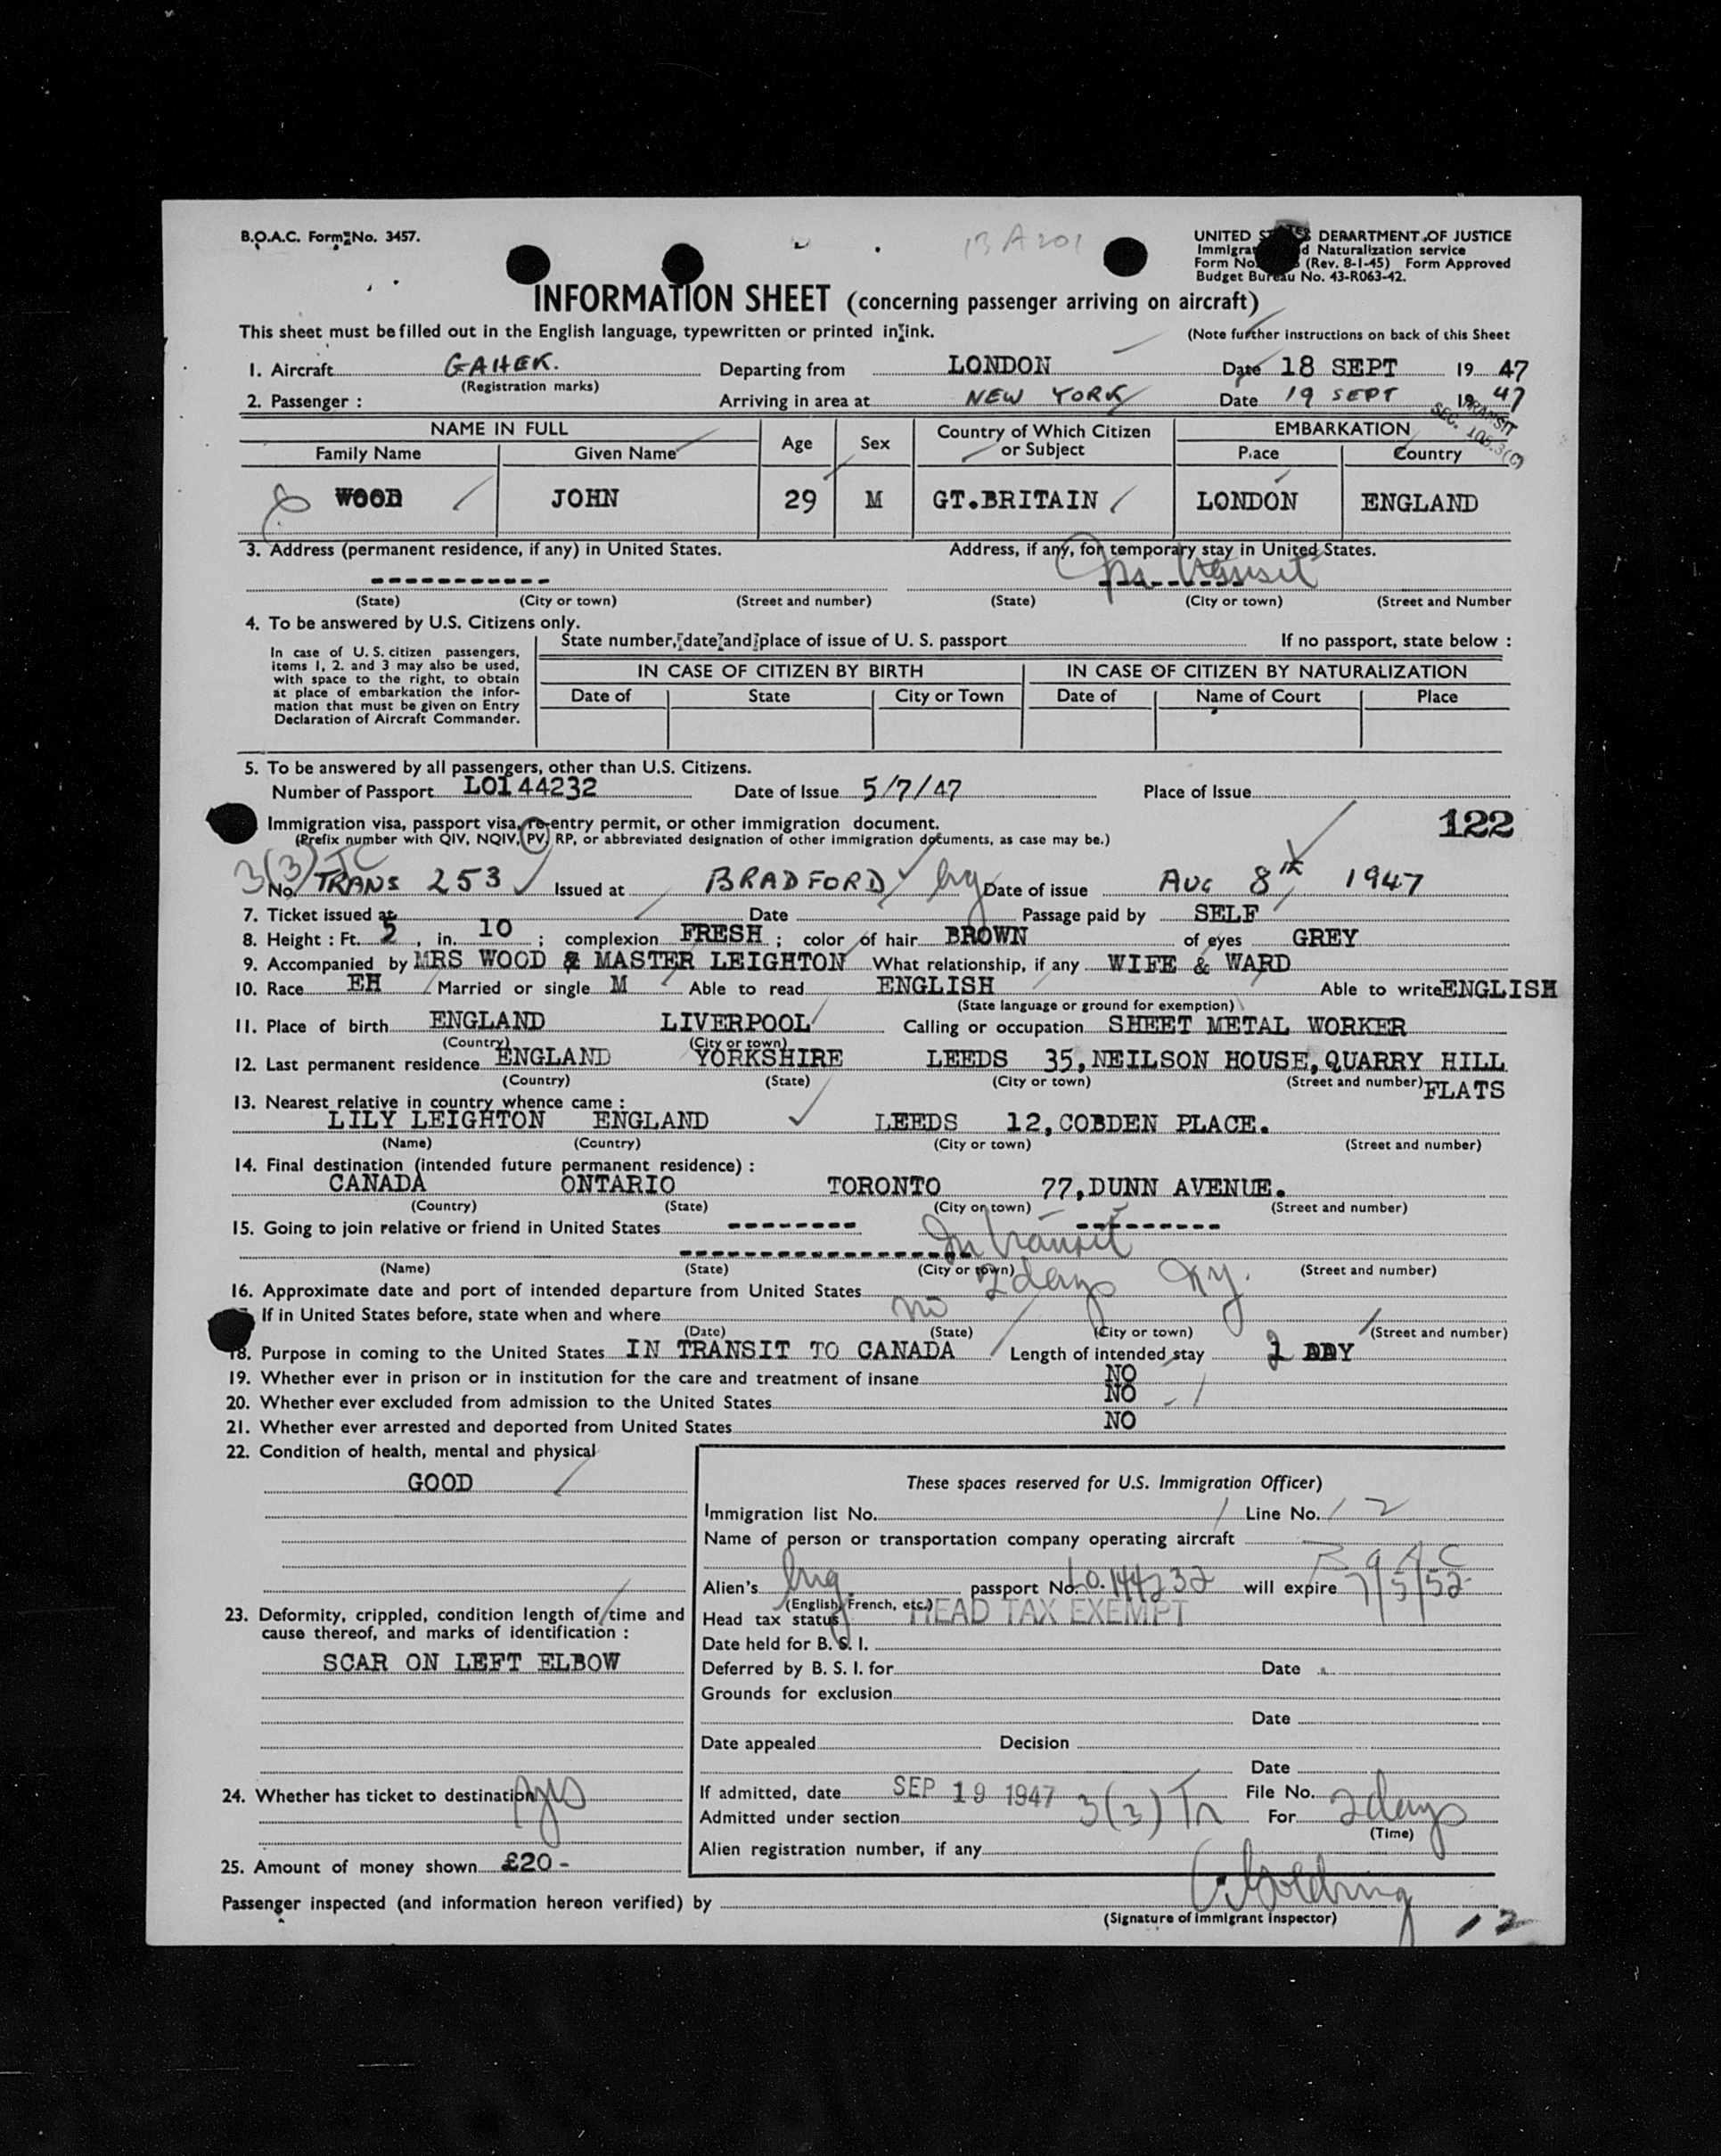 B.O.A.C. Form No. 3457.
13 A 201
UNITED STATES DEPARTMENT OF JUSTICE
Immigra d Naturalization service
Form No. (Rev. 8-1-45) Form Approved
Budget Bureau No. 43-R063-42.
INFORMATION SHEET (concerning passenger arriving on aircraft)
This sheet must be filled out in the English language, typewritten or printed in ink. (Note further instructions on back of this Sheet
1. Aircraft GAHEK. Departing from LONDON Date 18 SEPT 19 47
(Registration marks)
2. Passenger : Arriving in area at NEW YORK Date 19 SEPT 19 47
TRANSIT
SEC. 106.3(C)
NAME IN FULL Age Sex Country of Which Citizen or Subject EMBARKATION
Family Name Given Name Place Country
WOOD JOHN 29 M GT.BRITAIN LONDON ENGLAND
3. Address (permanent residence, if any) in United States. Address, if any, for temporary stay in United States.
In transit
(State) (City or town) (Street and number) (State) (City or town) (Street and Number
4. To be answered by U.S. Citizens only.
In case of U.S. citizen passengers, items 1, 2. and 3 may also be used, with space to the right, to obtain at place of embarkation the information that must be given on Entry Declaration of Aircraft Commander.
State number, date and place of issue of U. S. passport If no passport, state below :
IN CASE OF CITIZEN BY BIRTH IN CASE OF CITIZEN BY NATURALIZATION
Date of State City or Town Date of Name of Court Place
5. To be answered by all passengers, other than U.S. Citizens.
Number of Passport LO144232 Date of Issue 5/7/47 Place of Issue
122
Immigration visa, passport visa, re-entry permit, or other immigration document.
(Prefix number with QIV, NQIV, PV, RP, or abbreviated designation of other immigration documents, as case may be.)
3(3) TC
No. TRANS 253 Issued at BRADFORD Date of issue AUG 8th 1947
7. Ticket issued at Date Passage paid by SELF
8. Height : Ft. 5 , in. 10 ; complexion FRESH ; color of hair BROWN of eyes GREY
9. Accompanied by MRS WOOD & MASTER LEIGHTON What relationship, if any WIFE & WARD
10. Race EH Married or single M Able to read ENGLISH Able to write ENGLISH
(State language or ground for exemption)
11. Place of birth ENGLAND LIVERPOOL Calling or occupation SHEET METAL WORKER
(Country) (City or town)
12. Last permanent residence ENGLAND YORKSHIRE LEEDS 35,NEILSON HOUSE,QUARRY HILL
(Country) (State) (City or town) (Street and number) FLATS
13. Nearest relative in country whence came :
LILY LEIGHTON ENGLAND LEEDS 12,COBDEN PLACE.
(Name) (Country) (City or town) (Street and number)
14. Final destination (intended future permanent residence) :
CANADA ONTARIO TORONTO 77,DUNN AVENUE.
(Country) (State) (City or town) (Street and number)
15. Going to join relative or friend in United States
In transit
(Name) (State) (City or town) (Street and number)
16. Approximate date and port of intended departure from United States 2 days NY.
If in United States before, state when and where no
(Date) (State) (City or town) (Street and number)
18. Purpose in coming to the United States IN TRANSIT TO CANADA Length of intended stay 2 DAY
19. Whether ever in prison or in institution for the care and treatment of insane NO
20. Whether ever excluded from admission to the United States NO
21. Whether ever arrested and deported from United States NO
22. Condition of health, mental and physical
GOOD
These spaces reserved for U.S. Immigration Officer)
Immigration list No. Line No. 12
Name of person or transportation company operating aircraft
B O A C
Alien's Eng. passport No. LO.144232 will expire 7/5/52
(English, French, etc.)
23. Deformity, crippled, condition length of time and cause thereof, and marks of identification :
SCAR ON LEFT ELBOW
Head tax status HEAD TAX EXEMPT
Date held for B. S. I.
Deferred by B. S. I. for Date
Grounds for exclusion
Date
Date appealed Decision
Date
24. Whether has ticket to destination yes
If admitted, date SEP 19 1947 File No.
Admitted under section 3(3) Tr For 2 days
(Time)
Alien registration number, if any
25. Amount of money shown £20-
Passenger inspected (and information hereon verified) by
(Signature of Immigrant Inspector)
12